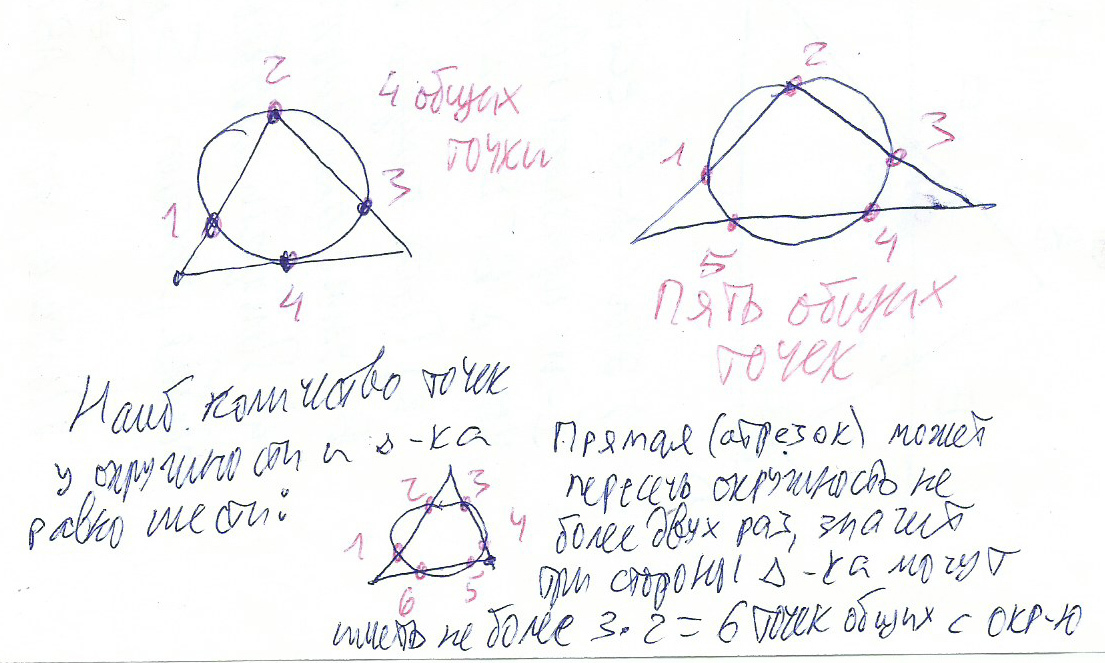 2
4 общих
точки
1
3
4
2
1
3
5
4
Пять общих
точек
Наиб. количество точек
у окружности и Δ-ка
равно шести:
2
3
1
4
6
5
Прямая (отрезок) может
пересечь окружность не
более двух раз, значит
три стороны Δ-ка могут
иметь не более 3·2=6 точек общих с окр-ю